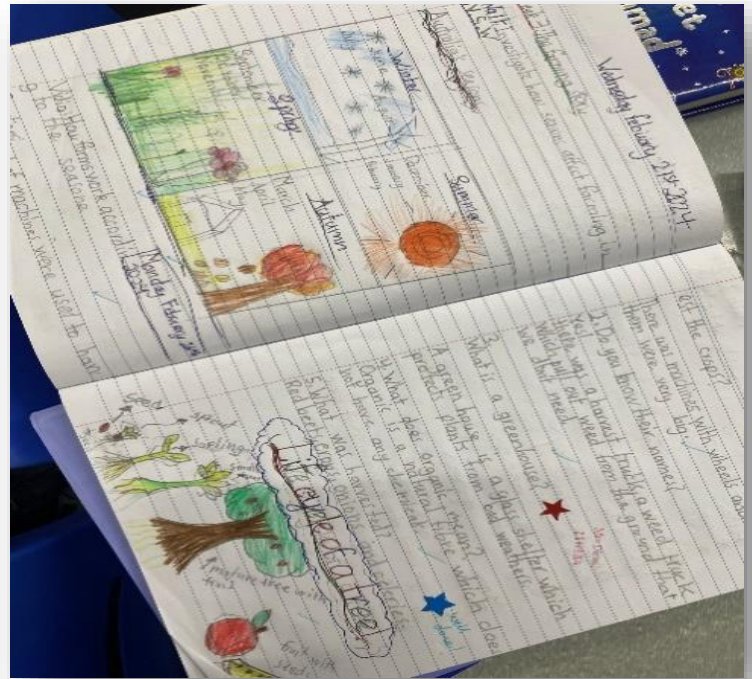 Wednesday February 21st 2024
The Farming Story
investigate how seasons affect farming in
Winter
June
Summer
December
January
February
Spring
September
October
Autumn
March
April
May
Who How farms work accordin
g to the seasons.
Monday February
machines were used to harv
of the crops?
There was machines with wheels and
them were very big.
2. Do you know their names?
Yes!
there was a harvest truck, a weed truck
which pull out weed from the ground that
we dont need
3.
What is a greenhouse?
A green house is a glass shelter which
protects plants from bad weathers.
4. What does organic mean?
Organic is a natural which does
not have any chemical
5. What was harvested?
Red beetroots, onions and
well
done!
Life cycle of a tree!
seed
sprout
mature tree with
fruit
fruit with
seed